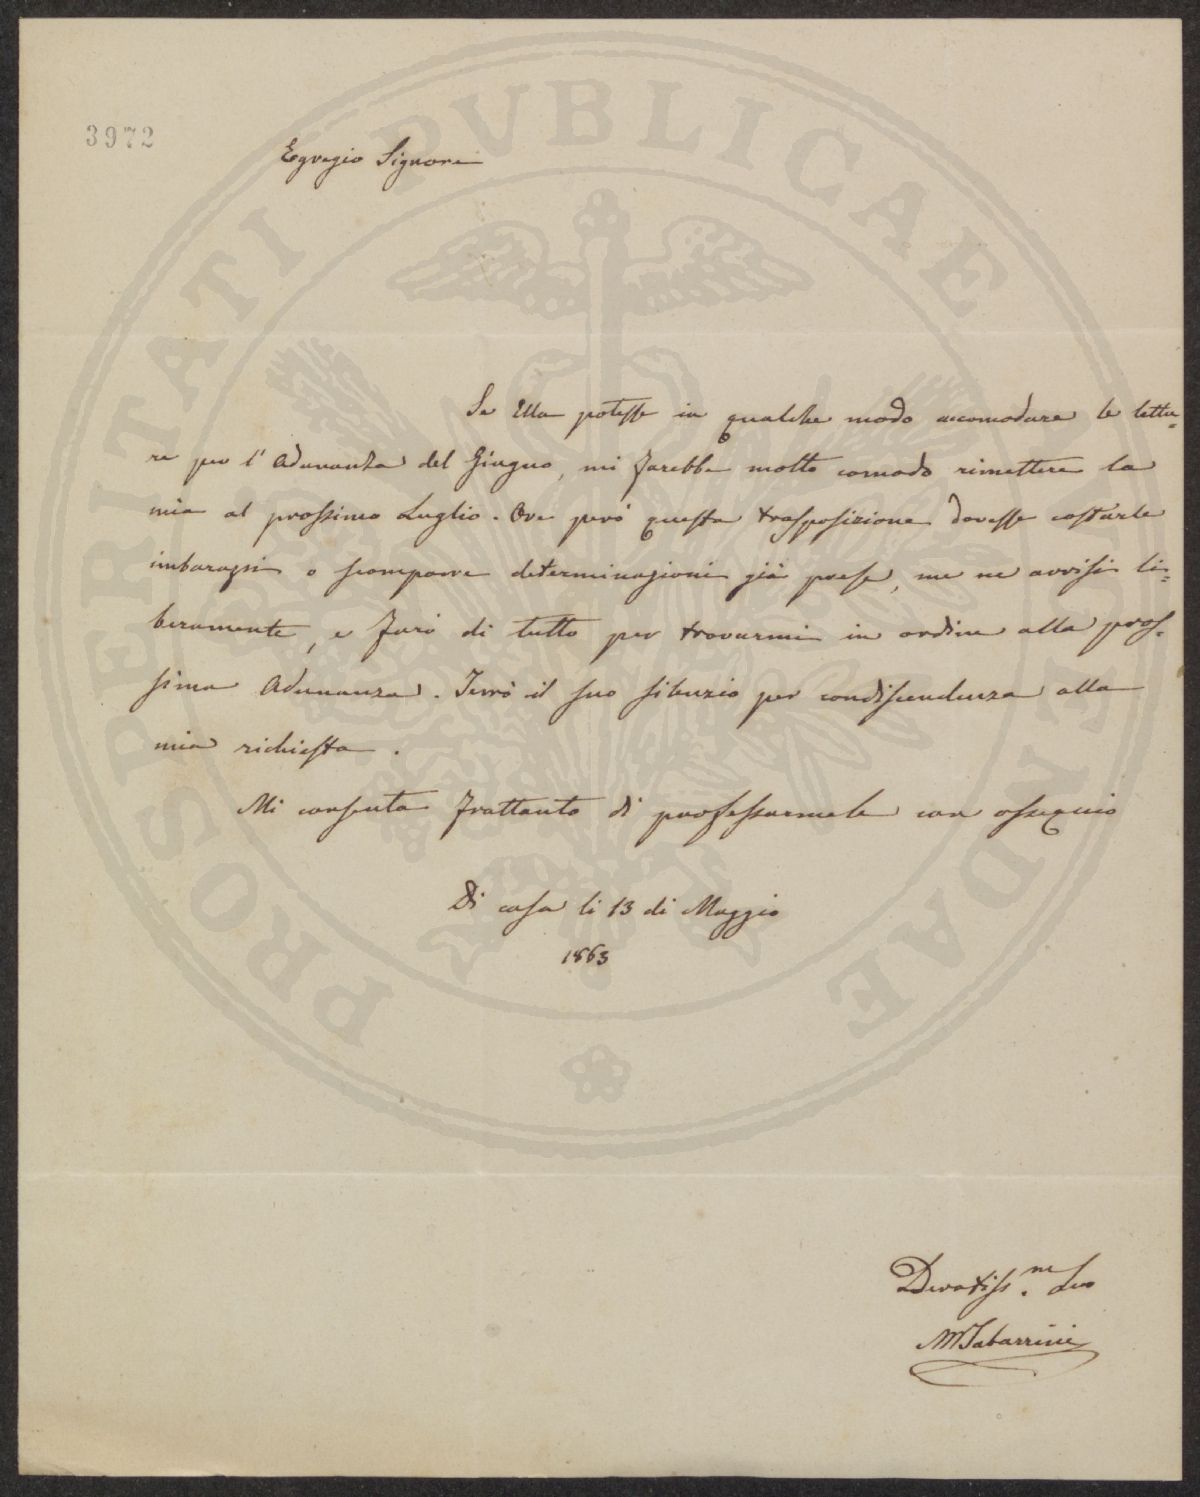 PROSPERITATI PVBLICAE AVGENDAE
3972
Egregio Signore
Se Ella potesse in qualche modo accomodare le lettu=
re per l'Adunanza del Giugno, mi farebbe molto comodo rimettere la
mia al prossimo Luglio. Ove però questa trasposizione dovesse costarle
imbarazzi o scomporre determinazioni già prese, me ne avvisi li=
beramente, e farò di tutto per trovarmi in ordine alla pros=
sima Adunanza. Terrò il suo silenzio per condiscendenza alla
mia richiesta.
Mi consenta frattanto di professarmele con ossequio
Di casa li 13 di Maggio
1863
Devotiss.mo Suo
M Tabarrini